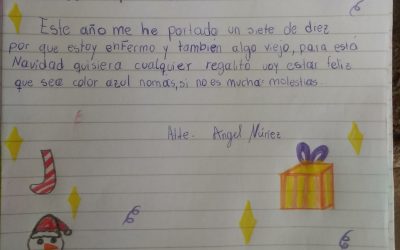 Este año me he portado un siete de diez
por que estoy enfermo y tambien algo viejo, para está
Navidad quisiera cualquier regalito voy estar feliz
que sea color azul nomas, si no es mucha molestias
Atte. Angel Núñez